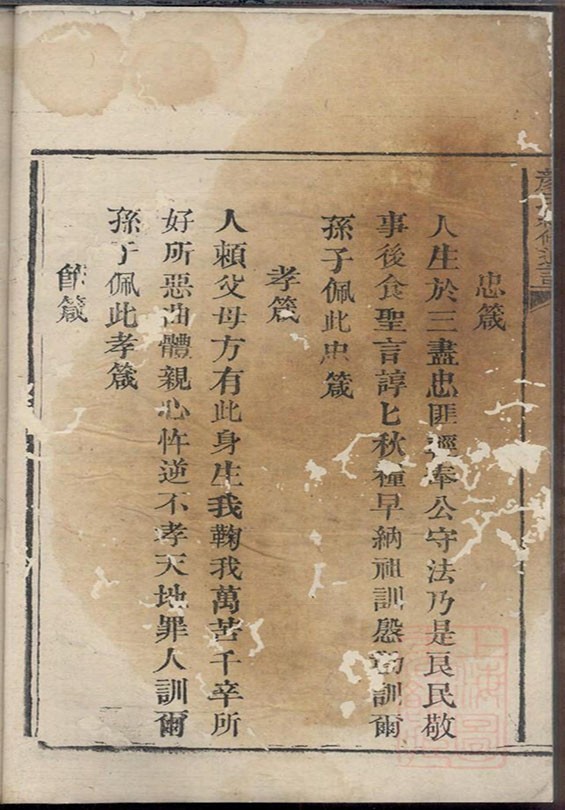 忠箴
人生於三盡忠匪輕奉公守法乃是良民敬
事後食聖言諄匕秋糧早納祖訓慇勤訓爾
孫子佩此忠箴
孝箴
人賴父母方有此身生我鞠我萬苦千辛所
好所惡曲體親心忤逆不孝天地罪人訓爾
孫子佩此孝箴
節箴